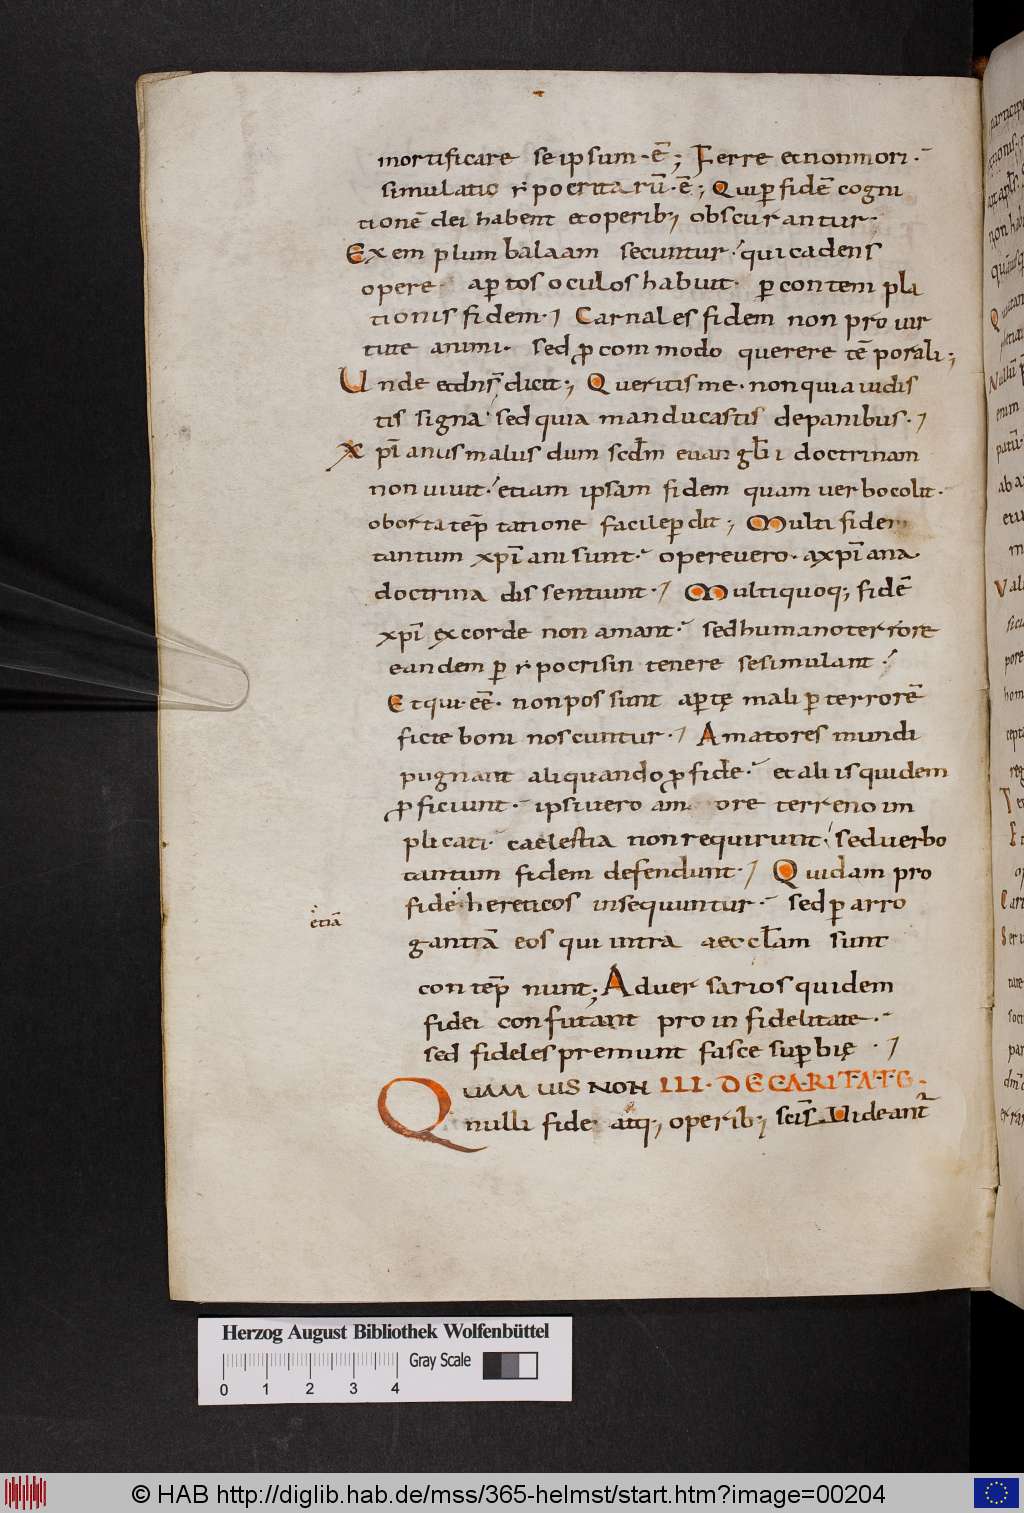 mortificare se ipsum · ē; Ferre et non mori ·
simulatio ypocritarū · ē; Qui ꝑ fidē cogni
tionē dei habent et operib; obscurantur;
Exemplum balaam secuntur · qui cadens
opere · aꝑtos oculos habuit · ꝑ contempla
tionis fidem · Carnales fidem non pro uir
tute animi · sed ꝓ commodo querere tēporali;
Unde et dn̄s dicit; Queritis me · non quia uidis
tis signa · sed quia manducastis de panibus ·
Xp̄ianus malus dum scdm̄ euangl̄i doctrinam
non uiuit · etiam ipsam fidem quam uerbo colit ·
oborta tēptatione facile ꝑdit; Multi fide
tantum xp̄iani sunt · opere uero · a xp̄iana
doctrina dissentiunt · Multi quoq; fidē
xp̄i ex corde non amant · sed humano terrore
eandem ꝑ ypocrisin tenere se simulant ·
Et qui · eē · non possunt aꝑtę mali ꝑ terrorē
ficte boni noscuntur · Amatores mundi
pugnant aliquando ꝓ fide · et aliis quidem
ꝓficiunt · ipsi uero am ore terreno im
plicati · caelestia non requirunt · sed uerbo
tantum fidem defendunt · Quidam pro
fide · hereticos insequuntur · sed ꝑ arro
etiā
gantiā eos qui intra aeccl̄am sunt
contēpnunt; Aduersarios quidem
fidei confutant pro infidelitate ·
sed fideles premunt fasce suꝑbię ·
QUAMUIS NON III · DE CARITATE ·
nulli fide atq; operib; sc̄is Uideant᷑
Herzog August Bibliothek Wolfenbüttel
0 1 2 3 4 Gray Scale
© HAB http://diglib.hab.de/mss/365-helmst/start.htm?image=00204